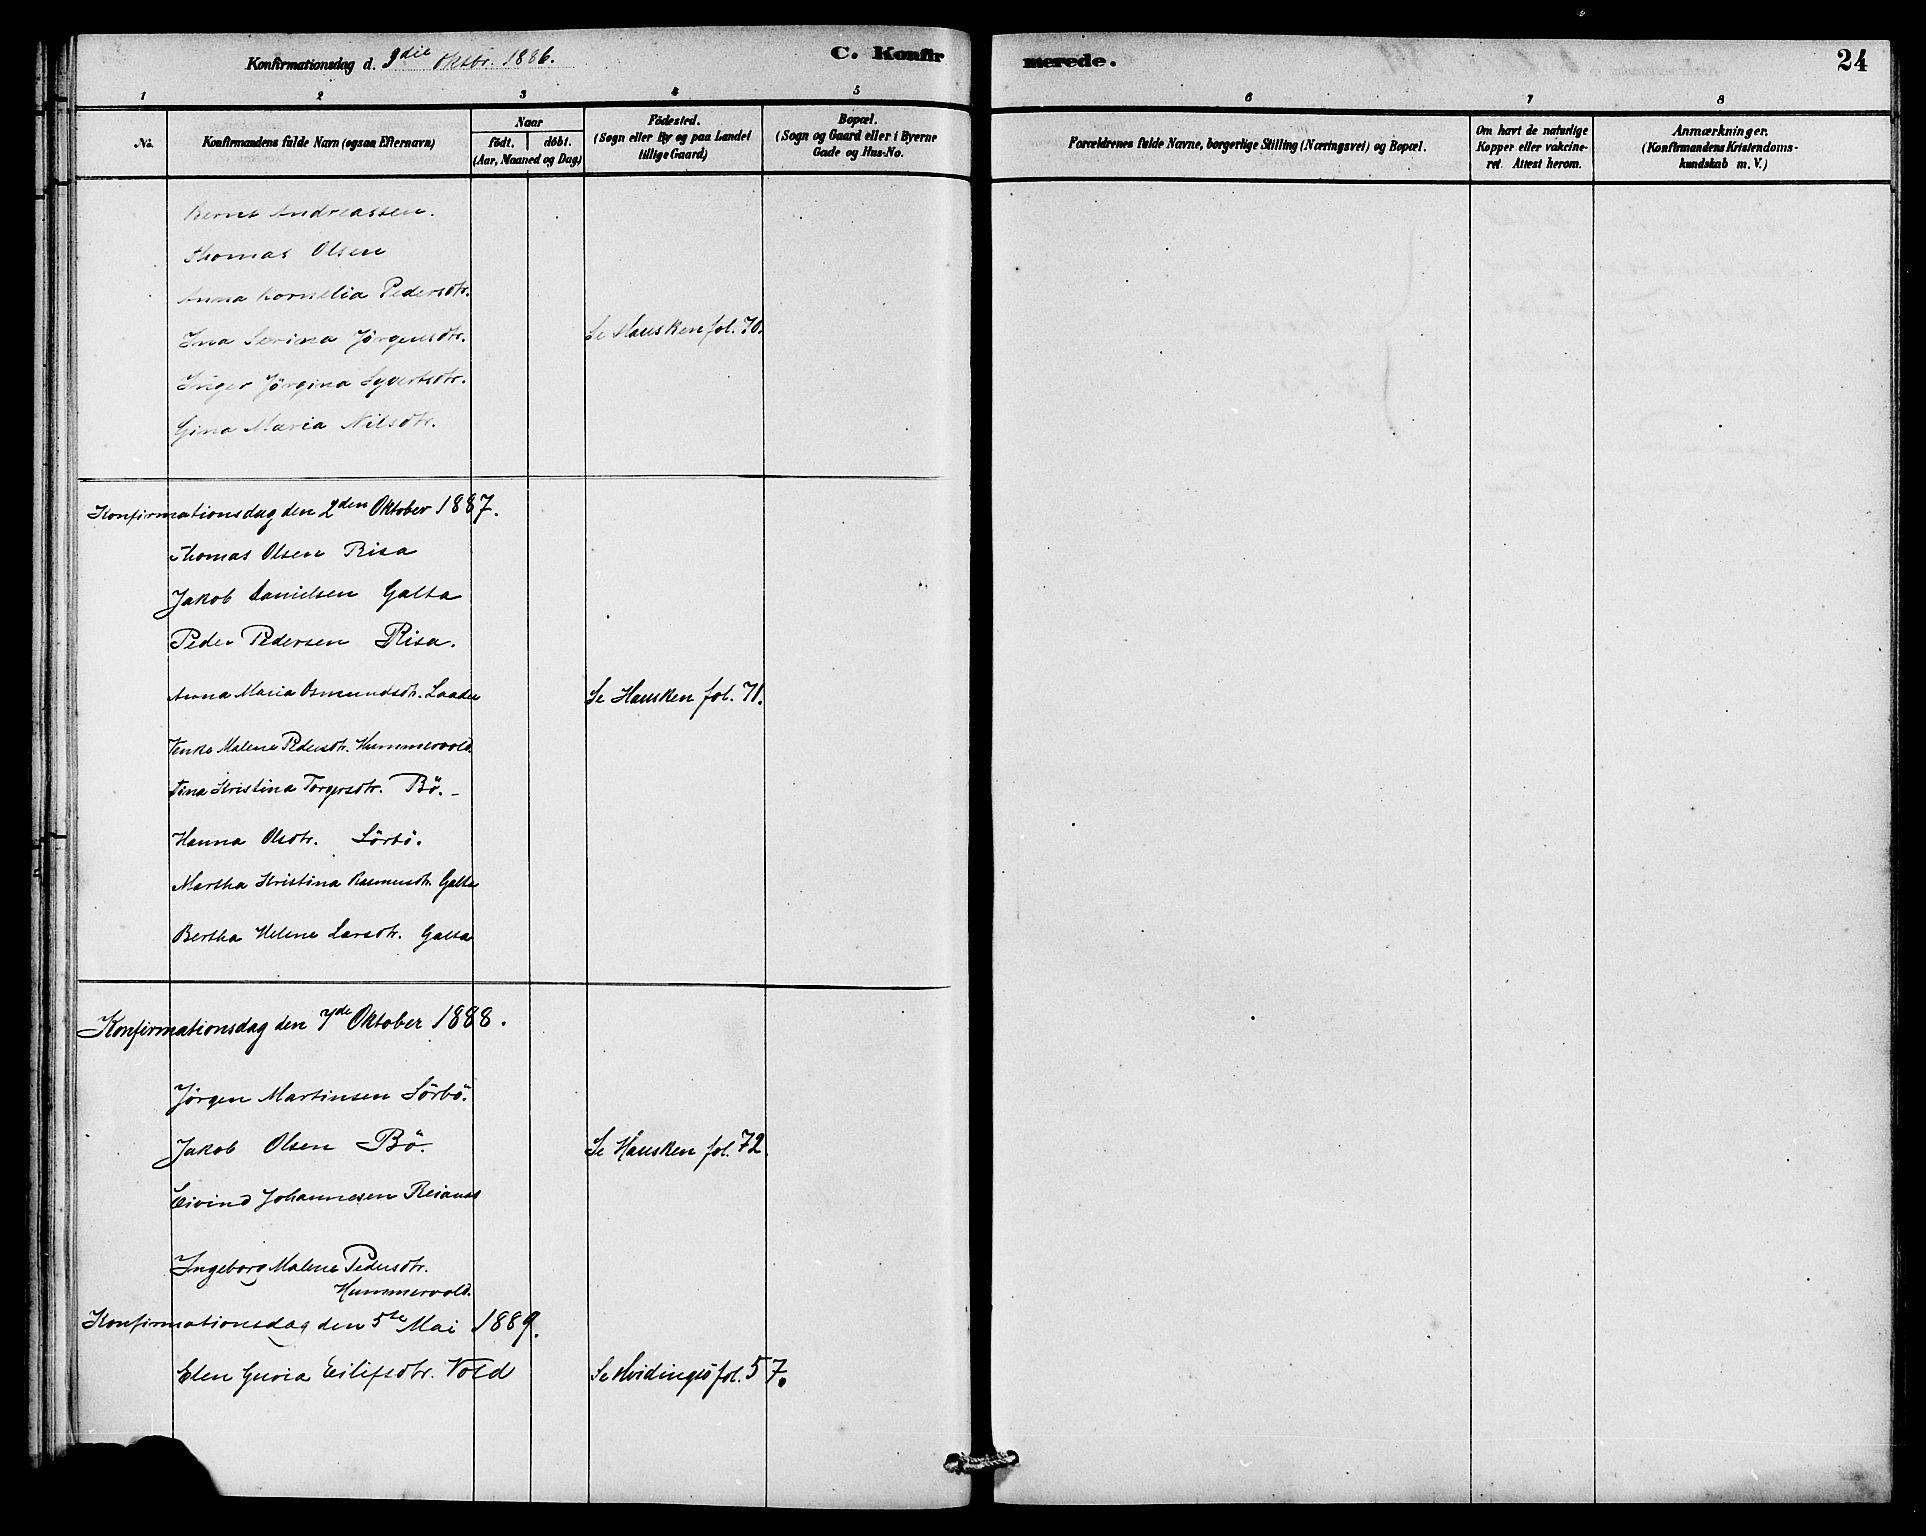 Konfirmationsdag d. 3die Oktbr. 1886.
C. Konfir
merede.
24
1 2 3 4 5 6 7 8
No.
Konfirmandens fulde Navn (ogsaa Efternavn)
Naar
födt. döbt.
(Aar, Maaned og Dag)
Födested.
(Sogn eller By og paa Landet
tillige Gaard)
Bopæl.
(Sogn og Gaard eller i Byerne
Gade og Hus-No.
Forældrenes fulde Navne, borgerlige Stilling (Næringsvei) og Bopæl.
Om havt de naturlige
Kopper eller vakcine-
ret. Attest herom.
Anmærkninger.
(Konfirmandens Kristendoms-
kundskab m. V.)
Bernt Andreassen.
Thomas Olsen
Anna Kornelia Pedersdtr.
Ina Serina Jörgensdtr. Se Hausken fol. 70.
Inger Jörgina Syvertsdtr.
Gina Maria Nilsdtr.
Konfirmationsdag den 2den Oktober 1887.
Thomas Olsen Risa
Jakob Danielsen Galta
Peder Pedersen Risa.
Anna Maria Osmundsdtr. Laader Se Hausken fol. 71.
Malene Pedersdtr. Hummervold.
Kristina Torgersdtr. Bö.
Hanna Olsdtr. Sörbö.
Martha Kristina Rasmusdtr. Galta
Bertha Helene Larsdtr. Galta
Konfirmationsdag den 7de Oktober 1888.
Jörgen Martinsen Sörbö.
Jakob Olsen Bö. Se Hausken fol. 72.
Eivind Johannesen Reianes
Ingeborg Malene Pedersdtr.
Hummervold.
Konfirmationsdag den 5te Mai 1889.
Elen Eilifsdtr. Vold Se Hvidingsö fol. 57.